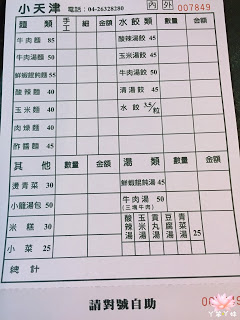 小天津 電話：04-26328280 內 外 007849
麵類 手工 細 金額 水餃類 數量 金額
牛肉麵 85 酸辣湯餃 45
牛肉湯麵 50 玉米湯餃 45
鮮蝦餛飩麵 55 牛肉湯餃 50
酸辣麵 40 清湯餃 45
玉米麵 40 水餃 3.5/粒
肉燥麵 40
酢醬麵 45
其他 數量 金額 湯類 數量 金額
燙青菜 30 鮮蝦餛飩湯 45
小籠湯包 50 牛肉湯 50
(三塊牛肉)
米糕 30 酸辣湯 玉米湯 貢丸湯 豆腐湯 青菜湯 25
小菜 25
總計
請對號自助